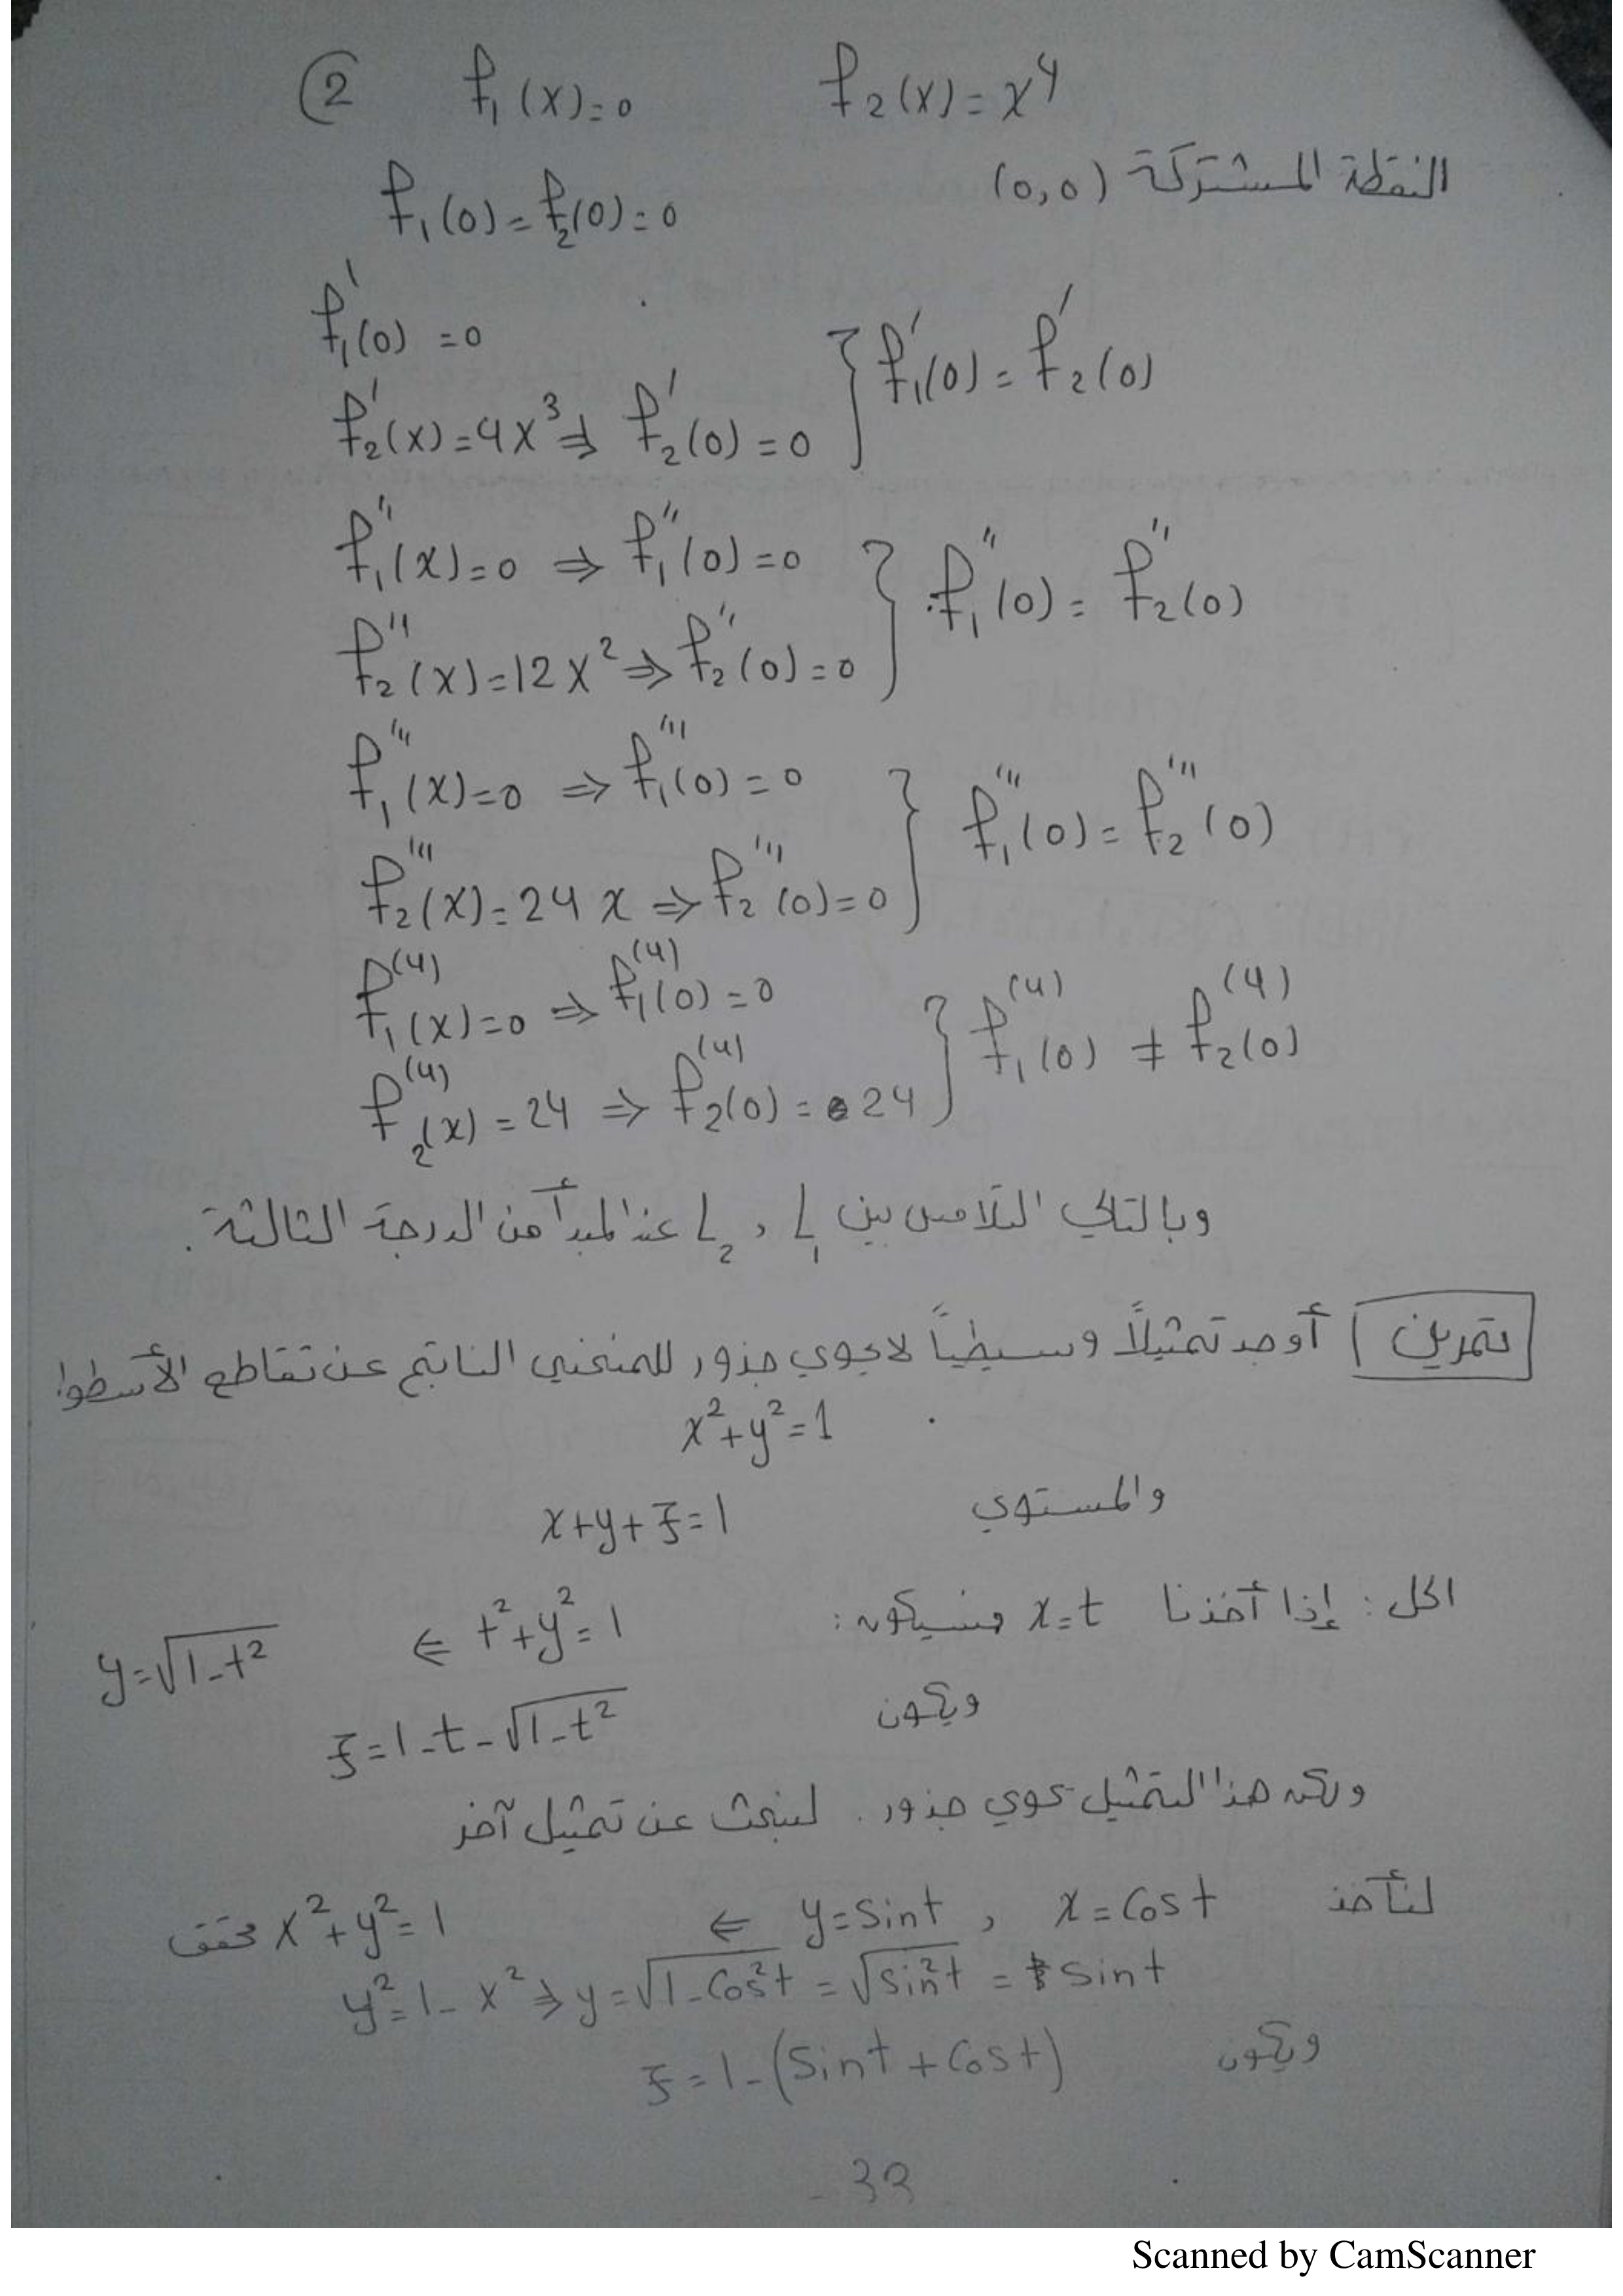 ② f₁(x)=0 f₂(x)=x⁴
النقطة المشتركة (0,0)
f₁(0)=f₂(0)=0
f₁'(0)=0
f₂'(x)=4x³ ⇒ f₂'(0)=0 } f₁'(0)=f₂'(0)
f₁''(x)=0 ⇒ f₁''(0)=0
f₂''(x)=12x² ⇒ f₂''(0)=0 } f₁''(0)=f₂''(0)
f₁'''(x)=0 ⇒ f₁'''(0)=0
f₂'''(x)=24x ⇒ f₂'''(0)=0 } f₁'''(0)=f₂'''(0)
f₁⁽⁴⁾(x)=0 ⇒ f₁⁽⁴⁾(0)=0
f₂⁽⁴⁾(x)=24 ⇒ f₂⁽⁴⁾(0)=24 } f₁⁽⁴⁾(0) ≠ f₂⁽⁴⁾(0)
وبالتالي التلامس بين L₁ , L₂ عند المبدأ من الدرجة الثالثة.
تمرين) أوجد تمثيلاً وسيطياً لايحوي جذور للمنحني الناتج عن تقاطع الأسطوا
x²+y²=1
والمستوي x+y+z=1
الحل: إذا أخذنا x=t فسيكون: t²+y²=1 ⇐ y=√(1-t²)
ويكون z=1-t-√(1-t²)
ولكن هذا التمثيل يحوي جذور. لنبحث عن تمثيل آخر
لنأخذ x=Cost , y=Sint ⇐ x²+y²=1 محقق
y²=1-x² ⇒ y=√(1-Cos²t) = √(Sin²t) = Sint
ويكون z=1-(Sint+Cost)
Scanned by CamScanner